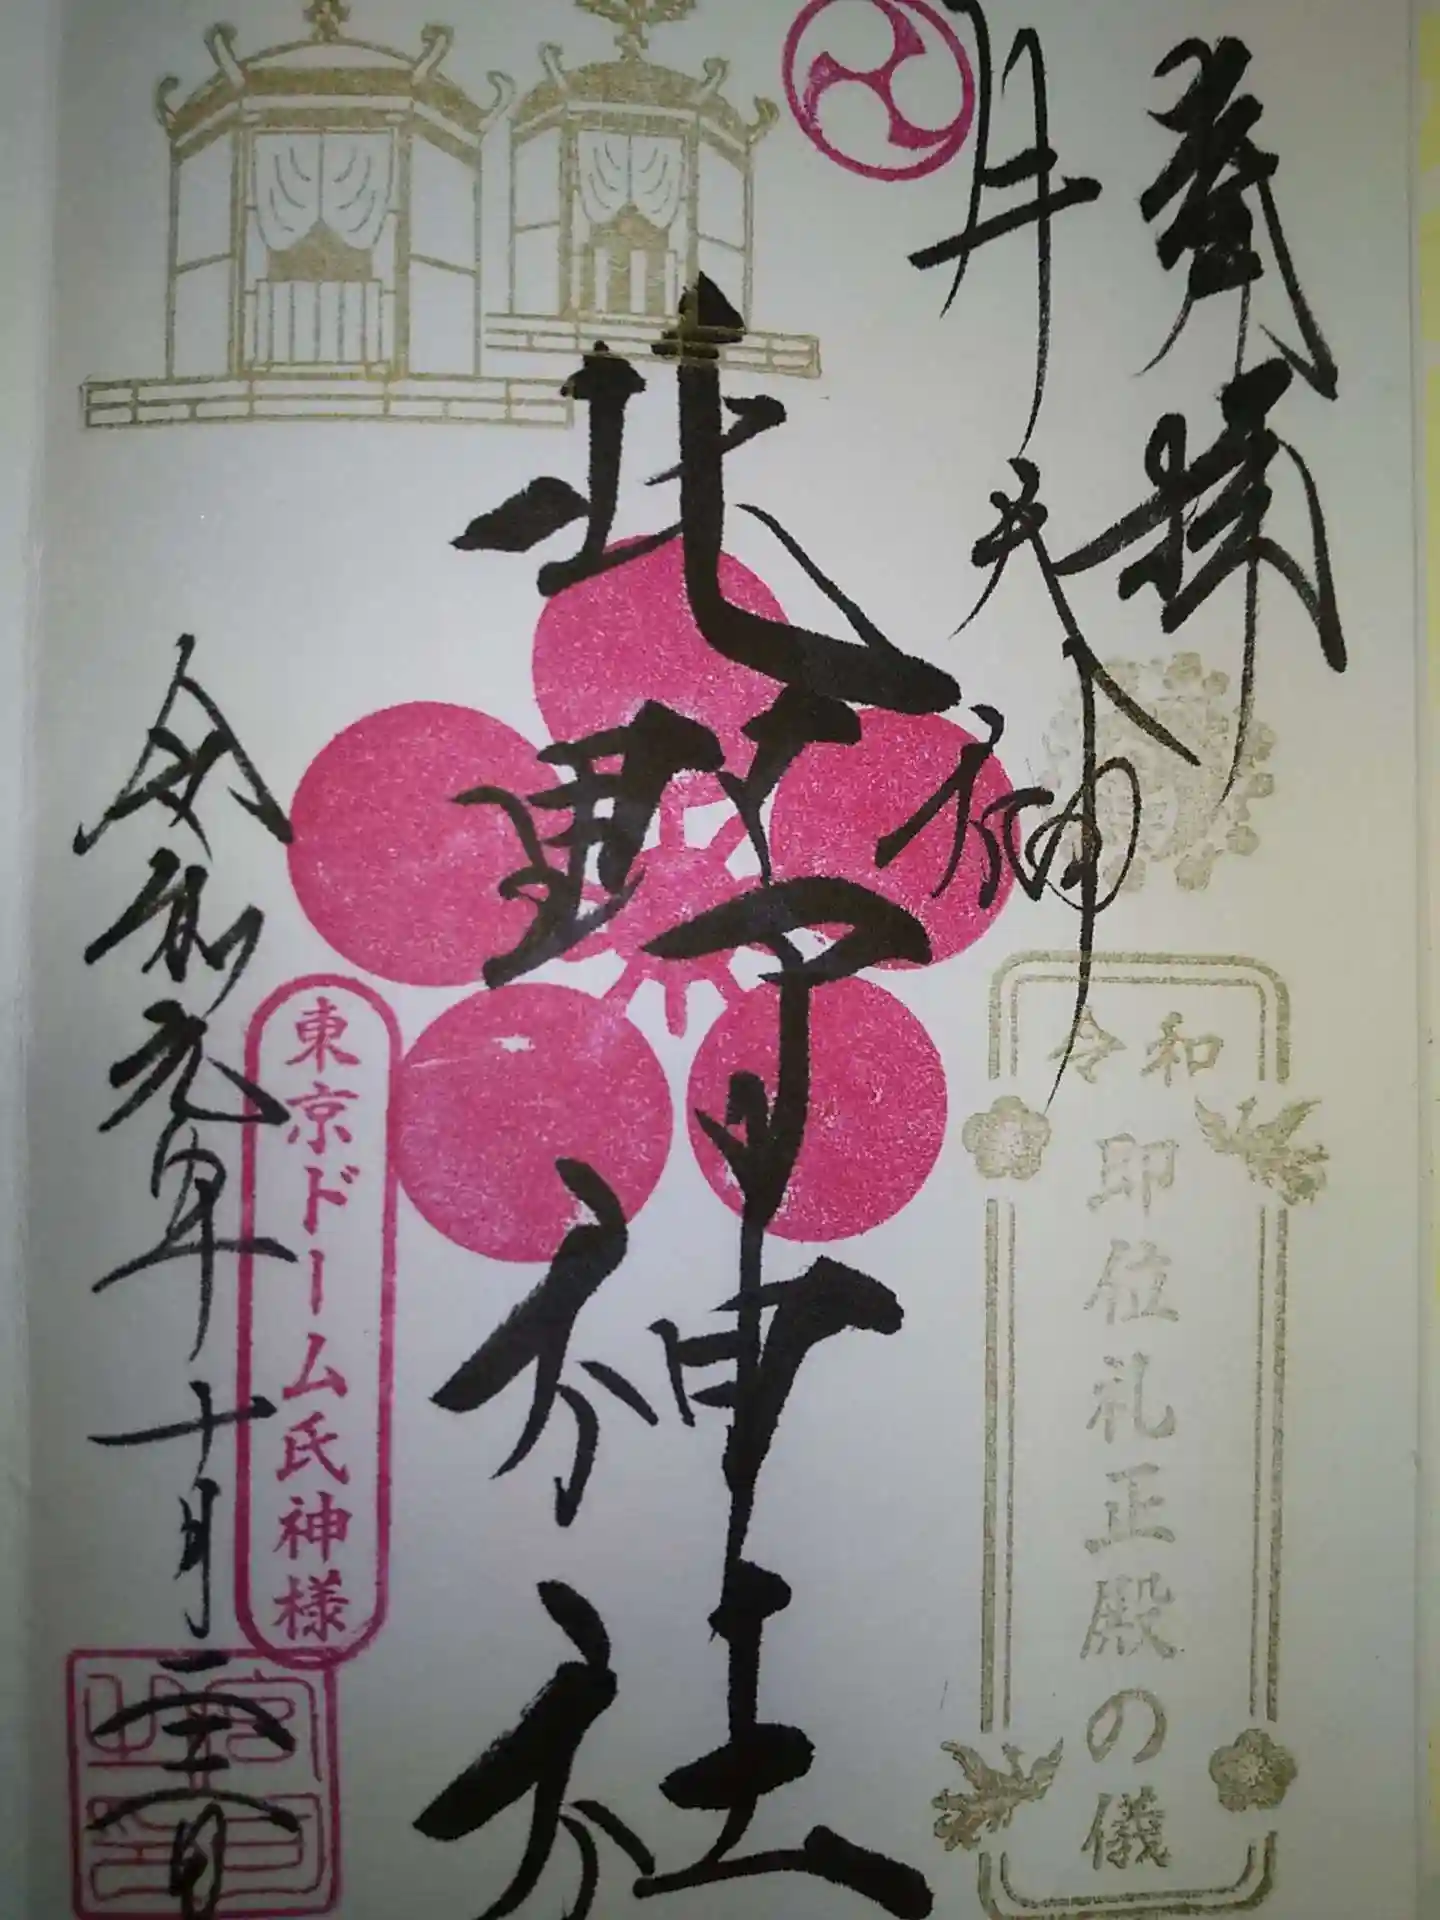 奉拝
牛天神
令和
即位礼正殿の儀
北野神社
東京ドーム氏神様
令和元年十月二十二日